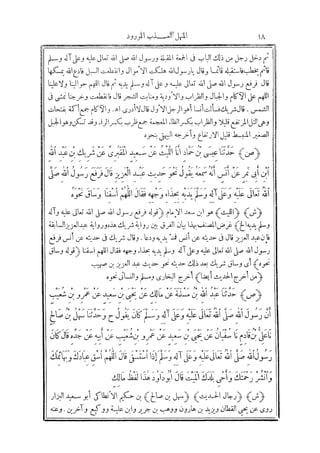 ١٨ المنهل العذب المورود
ثم دخل رجل من ذلك الباب فى الجمعة المقبلة ورسول الله صلى الله تعالى عليه وعلى آله وسلم
قائم يخطب فاستقبله قائما وقال يا رسول الله هلكت الأموال وانقطعت السبل فادع الله يمسكها
قال فرفع رسول الله صلى الله تعالى عليه وعلى آله وسلم يديه ثم قال اللهم حوالينا ولا علينا
اللهم على الآكام والجبال والظراب والأودية ومنابت الشجر قال فانقطعت وخرجنا نمشى فى
الشمس. قال شريك فسألت أنسا أهو الرجل الأول قال لا أدرى اه. والآكام جمع أكمة بفتحات
وهى التل المرتفع قليلا والظراب بكسر الظاء المعجمة جمع ظرب بكسر الراء وقد تسكن وهو الجبل
الصغير المنبسط قليل الارتفاع وأخرجه البيهقى بنحوه
(ص) حَدَّثَنَا عِيسَى بْنُ حَمَّادٍ أَنَا اللَّيْثُ عَنْ سَعِيدٍ الْمَقْبُرِىِّ عَنْ شَرِيكِ بْنِ عَبْدِ اللهِ
ابْنِ أَبِى نَمِرٍ عَنْ أَنَسٍ أَنَّهُ سَمِعَهُ يَقُولُ نَحْوَ حَدِيثِ عَبْدِ الْعَزِيزِ قَالَ فَرَفَعَ رَسُولُ اللهِ صَلَّى
اللهُ تَعَالَى عَلَيْهِ وَعَلَى آلِهِ وَسَلَّمَ يَدَيْهِ بِحِذَاءِ وَجْهِهِ فَقَالَ اللَّهُمَّ اسْقِنَا وَسَاقَ نَحْوَهُ
(ش) (الليث) هو ابن سعد الإمام (قوله فرفع رسول الله صلى الله تعالى عليه وعلى وآله
وسلم يديه الخ) غرض المصنف بهذا بيان الفرق بين رواية شريك هذه ورواية عبد العزيز السابقة
فإن عبد العزيز قال فى حديثه عن أنس فمد يديه ودعا. وقال شريك فى حديثه عن أنس فرفع
رسول الله صلى الله تعالى عليه وعلى آله وسلم يديه بحذاء وجهه فقال اللهم اسقنا (قوله وساق
نحوه) أى وساق شريك بعد ذلك حديثه نحو حديث عبد العزيز بن صهيب
(من أخرج الحديث أيضا) أخرجه البخارى ومسلم والنسائى بنحوه
(ص) حَدَّثَنَا عَبْدُ اللهِ بْنُ مَسْلَمَةَ عَنْ مَالِكٍ عَنْ يَحْيَى بْنِ سَعِيدٍ عَنْ عَمْرِو بْنِ شُعَيْبٍ
أَنَّ رَسُولَ اللهِ صَلَّى اللهُ تَعَالَى عَلَيْهِ وَعَلَى آلِهِ وَسَلَّمَ كَانَ يَقُولُ ح وَحَدَّثَنَا سَهْلُ بْنُ صَالِحٍ
نَا عَلِىُّ بْنُ قَادِمٍ نَا سُفْيَانُ عَنْ يَحْيَى بْنِ سَعِيدٍ عَنْ عَمْرِو بْنِ شُعَيْبٍ عَنْ أَبِيهِ عَنْ جَدِّهِ قَالَ كَانَ
رَسُولُ اللهِ صَلَّى اللهُ تَعَالَى عَلَيْهِ وَعَلَى آلِهِ وَسَلَّمَ إِذَا اسْتَسْقَى قَالَ اللَّهُمَّ اسْقِ عِبَادَكَ وَبَهَائِمَكَ
وَانْشُرْ رَحْمَتَكَ وَأَحْىِ بَلَدَكَ الْمَيِّتَ قَالَ أَبُو دَاوُدَ هَذَا لَفْظُ مَالِكٍ
(ش) (رجال الحديث) (سهل بن صالح) بن حكيم الأنطاكى أبو سعيد البزار
روى عن يحيى القطان ويزيد بن هارون ووهب بن جرير وابن علية ووكيع وآخرين. وعنه